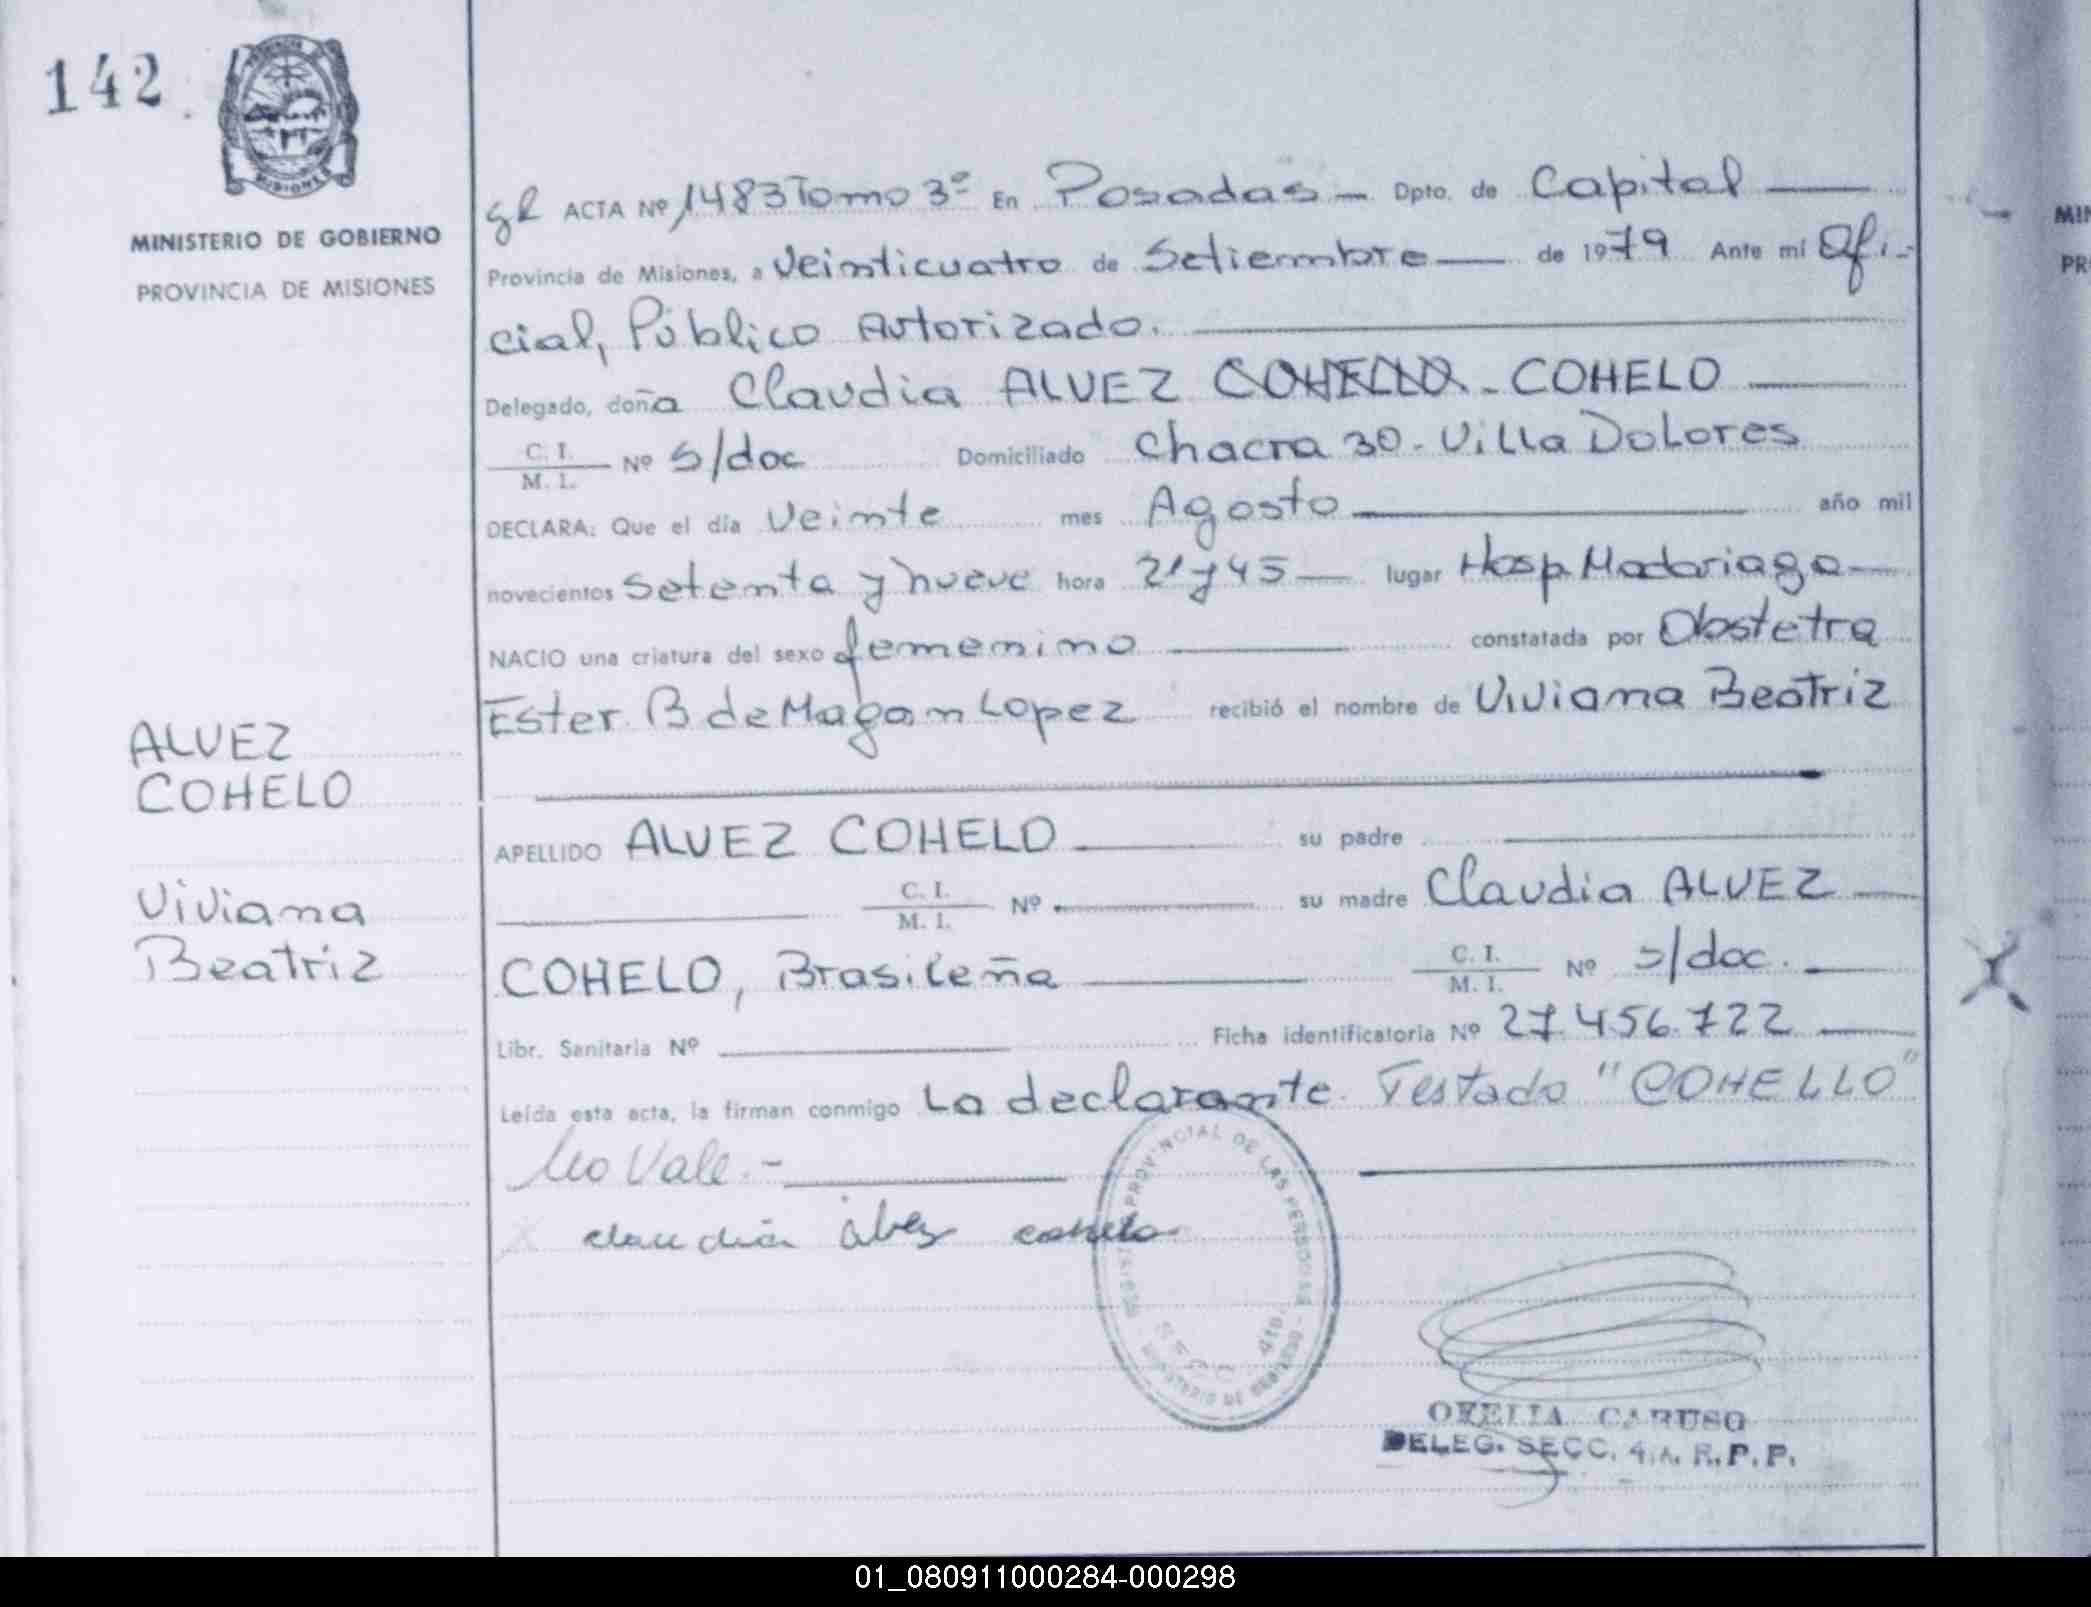 142
PROVINCIA DE
MISIONES
MINISTERIO DE GOBIERNO
PROVINCIA DE MISIONES
ACTA Nº 1483 Tomo 3º En Posadas — Dpto. de Capital —
Provincia de Misiones, a Veinticuatro de Setiembre — de 1979 Ante mi Ofi-
cial, Público Autorizado.
Delegado, doña Claudia ALVEZ COHELLO - COHELO —
C. I.
M. I. Nº s/doc Domiciliado Chacra 30 - Villa Dolores
DECLARA: Que el día Veinte mes Agosto — año mil
novecientos setenta y nueve hora 21 y 45 — lugar Hosp. Madariaga —
NACIO una criatura del sexo femenino — constatada por Obstetra
Ester B de Magan Lopez recibió el nombre de Viviana Beatriz
ALVEZ
COHELO
Viviana
Beatriz
APELLIDO ALVEZ COHELO — su padre —
C. I.
M. I. Nº — su madre Claudia ALVEZ —
COHELO, Brasileña — C. I.
M. I. Nº s/doc. —
Libr. Sanitaria Nº — Ficha identificatoria Nº 27.456.722 —
Leída esta acta, la firman conmigo La declarante. Testado "COHELLO"
No Vale.-
X claudia alvez cohelo
REGISTRO PROVINCIAL DE LAS PERSONAS
SECC. 4ta.
MINISTERIO DE GOBIERNO
OFELIA CARUSO
DELEG. SECC. 4.A. R.P.P.
X
MIN
PR
01_080911000284-000298